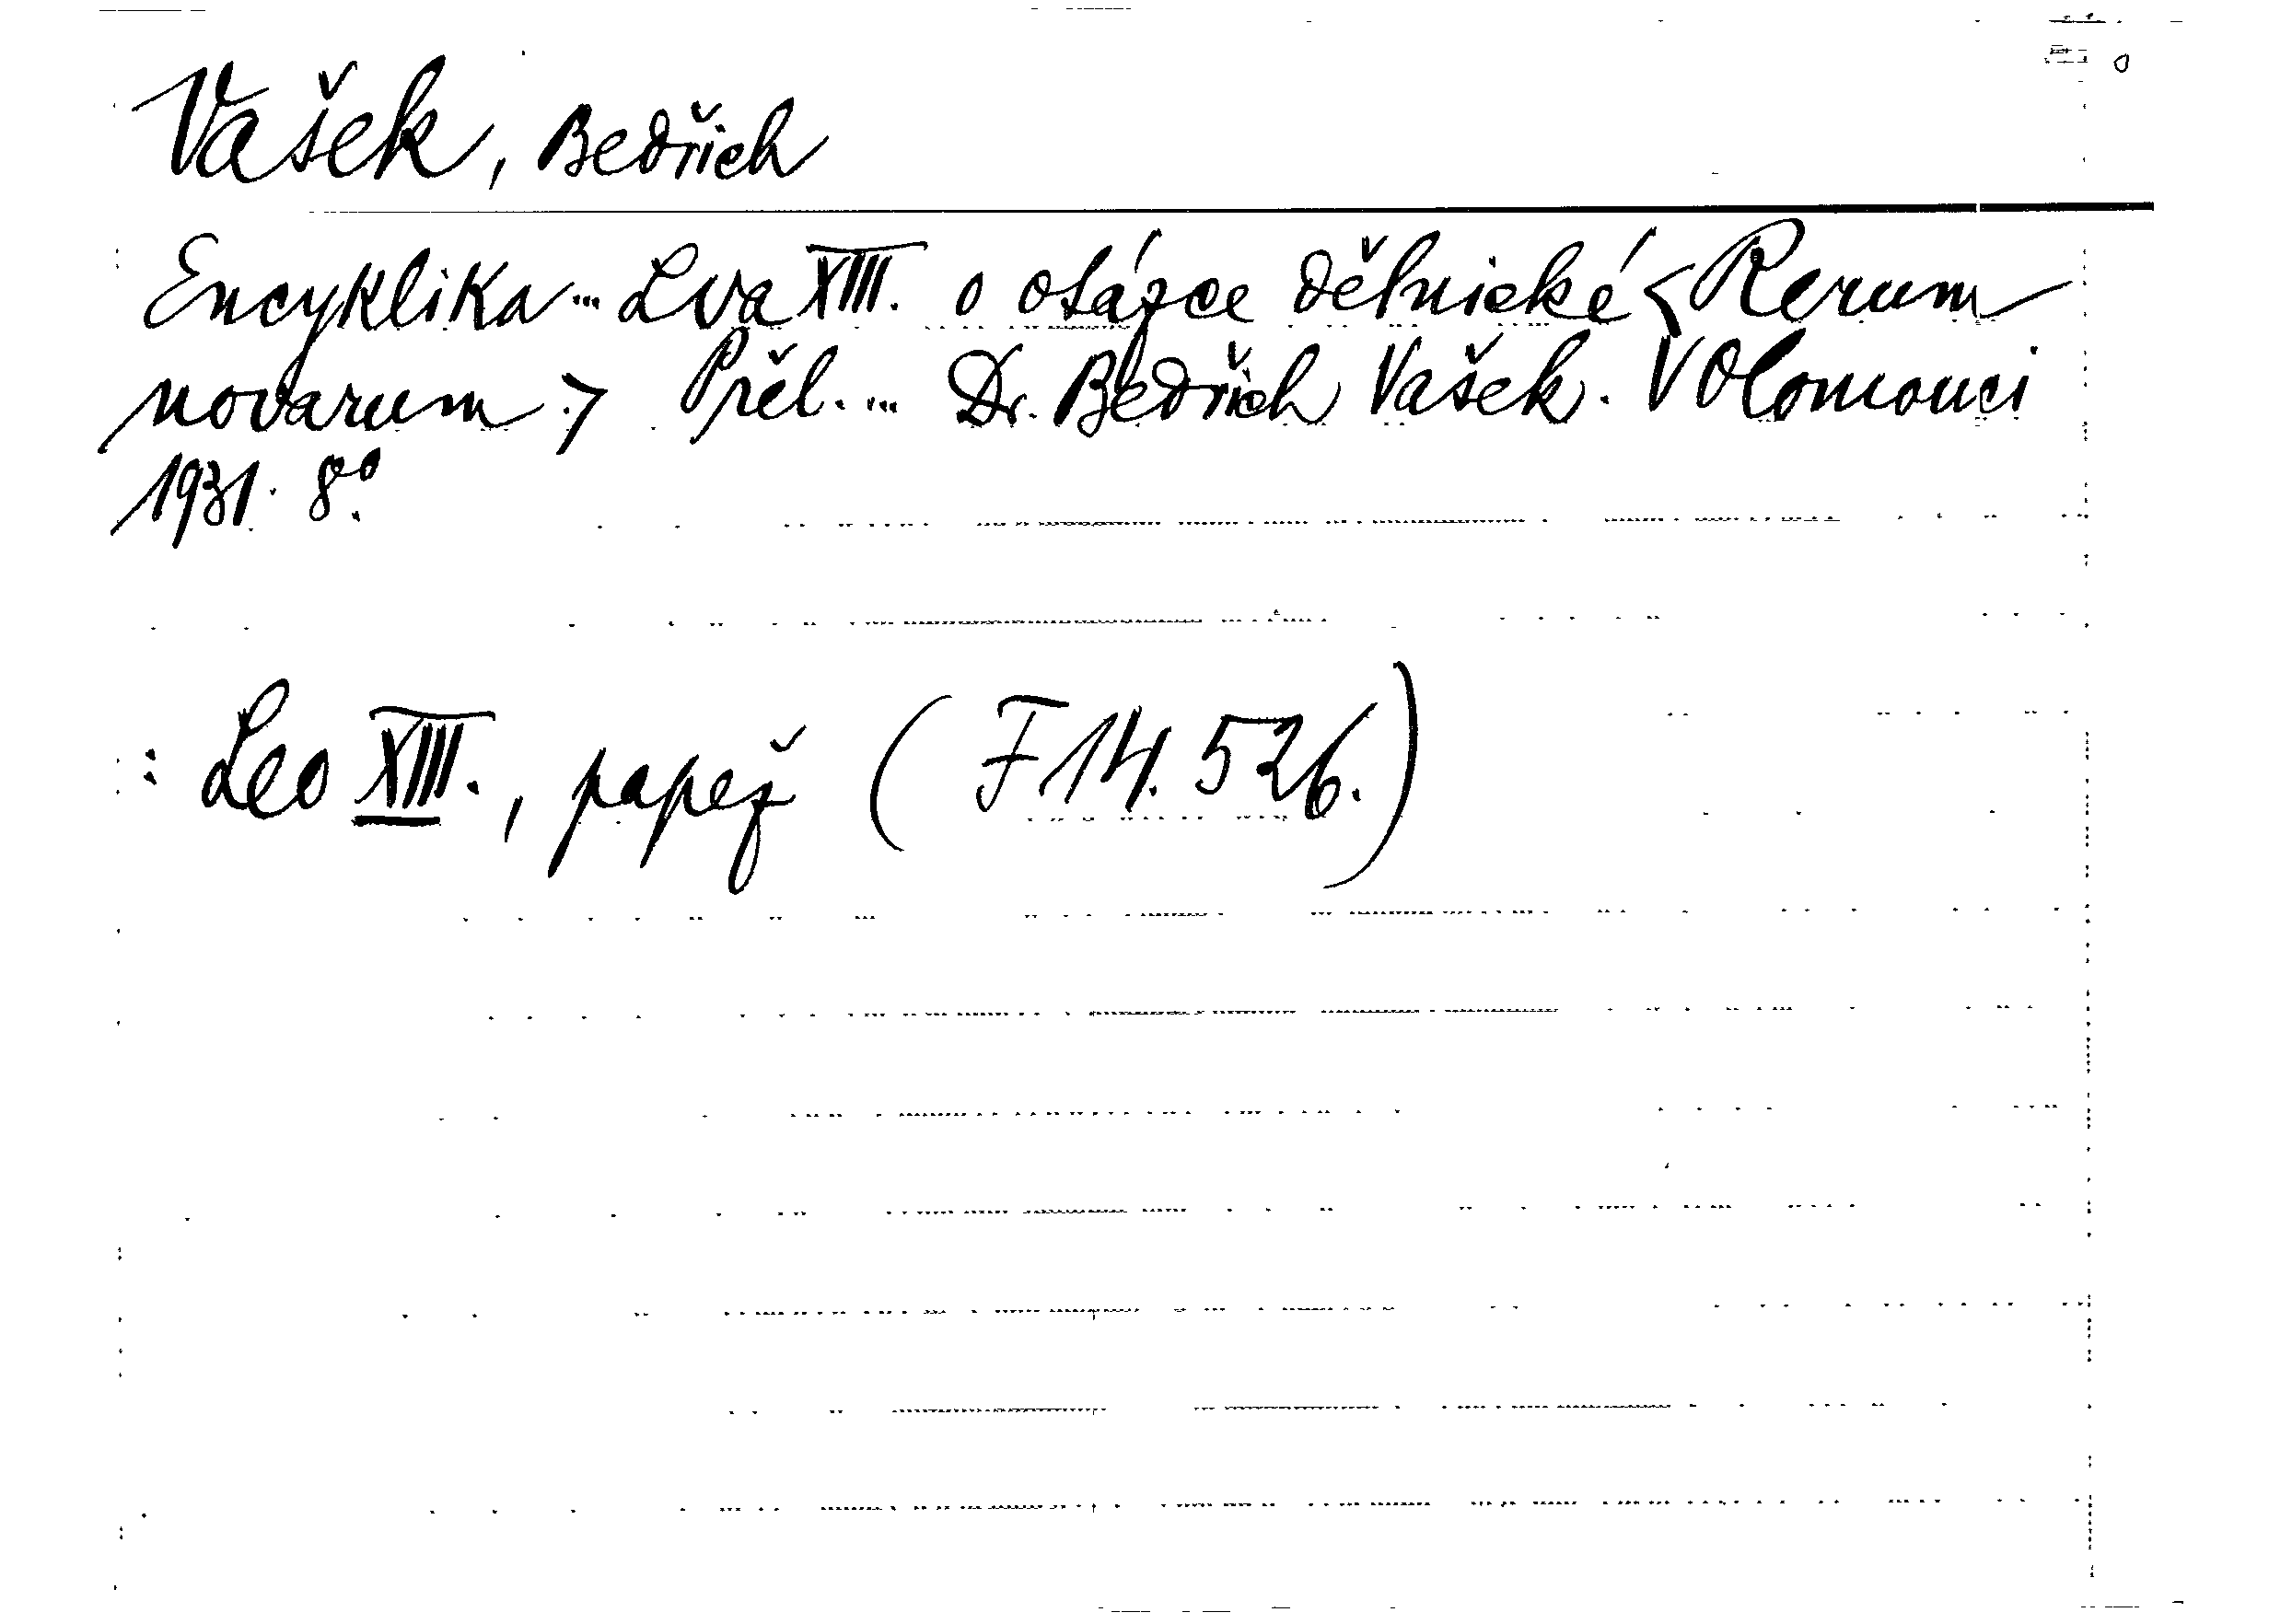 Vašek, Bedřich
Encyklika ... Lva XIII. o otázce dělnické < Rerum
novarum.> Přel. ... Dr. Bedřich Vašek. V Olomouci
1931. 8°.
: Leo XIII., papež (F 14.526.)